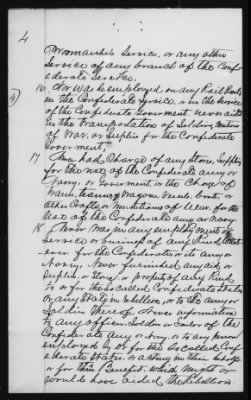 4
Workmanship Service, or any other
Service of any branch of the Conf-
ederate Service.
16. Nor was he employed on any Rail Road
in the Confederate Service, or in the Service
of the Confederate Government. never aided
in the Transportation of Soldiers,
of War, or Supplies for the Confederate
Government.
17. Nor had Charge of any Stores, Supplies
for the use of the Confederate army or
Navy. or Government. or the Charge of
Trains, teams, Wagons, Vessels, boats, or
other Crafts or Munitions of War, for the
use of the Confederate army or navy.
18. Never Was in any employment or
Service or business of any kind What-
ever for the Confederates or its army or
Navy. Never furnished any aid or
Supplies or Stores, or property of any kind
to or for the So called Confederate States
or any State in rebellion, or to the army or
Soldiers thereof. Never information
to any officer, Soldier or Sailor of the
Confederate Army or Navy. or to any person
employed by or for the So called Conf-
ederate States. or acting in their behalf
or for their benefit. which might or
would have aided the Rebellion.